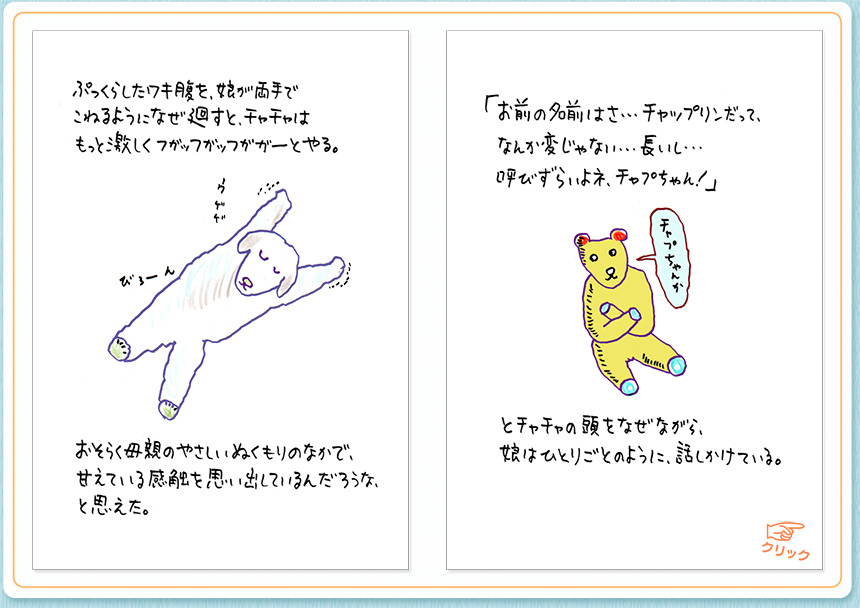 ぷっくらしたワキ腹を、娘が両手で
こねるようになぜ廻すと、チャチャは
もっと激しくフガッフガッフガガーとやる。
ウデデ
びろーん
おそらく母親のやさしいぬくもりのなかで、
甘えている感触を思い出しているんだろうな、
と思えた。
「お前の名前はさ…チャップリンだって、
なんか変じゃない…長いし…
呼びずらいよネ、チャプちゃん!」
チャプちゃんか
とチャチャの頭をなぜながら、
娘はひとりごとのように、話しかけている。
クリック